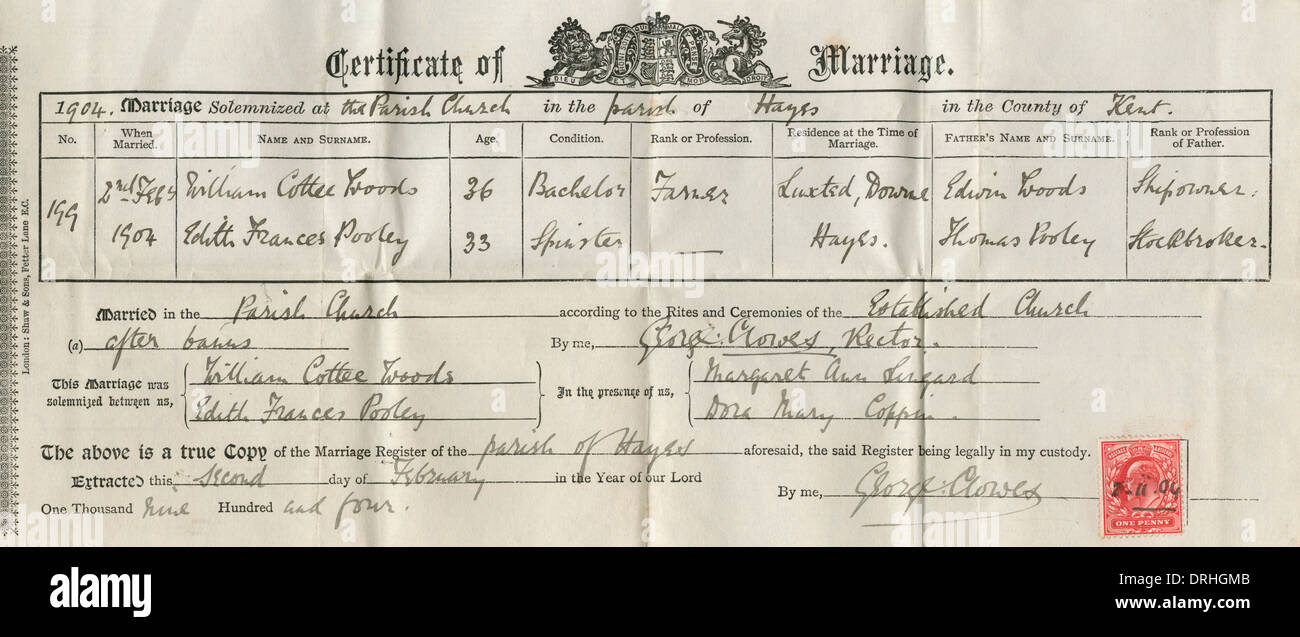 Certificate of Marriage.
DIEU ET MON DROIT
1904. Marriage Solemnized at the Parish Church in the parish of Hayes in the County of Kent.
No. When Married. NAME AND SURNAME. Age. Condition. Rank or Profession. Residence at the Time of Marriage. FATHER'S NAME AND SURNAME. Rank or Profession of Father.
199 2nd Feby William Cottee Woods 36 Bachelor Farmer Luxted, Downe Edwin Woods Shipowner.
1904 Edith Frances Pooley 33 Spinster — Hayes. Thomas Pooley Stockbroker.
Married in the Parish Church according to the Rites and Ceremonies of the Established Church
(a) after banns By me, George Clowes, Rector.
This Marriage was solemnized between us, William Cottee Woods In the presence of us, Margaret Ann
Edith Frances Pooley Dora Mary Coppin.
The above is a true Copy of the Marriage Register of the parish of Hayes aforesaid, the said Register being legally in my custody.
Extracted this second day of February in the Year of our Lord
One Thousand nine Hundred and four. By me, George Clowes
2-II.04
ONE PENNY
London: Shaw & Sons, Fetter Lane E.C.
alamy
a
Image ID: DRHGMB
www.alamy.com